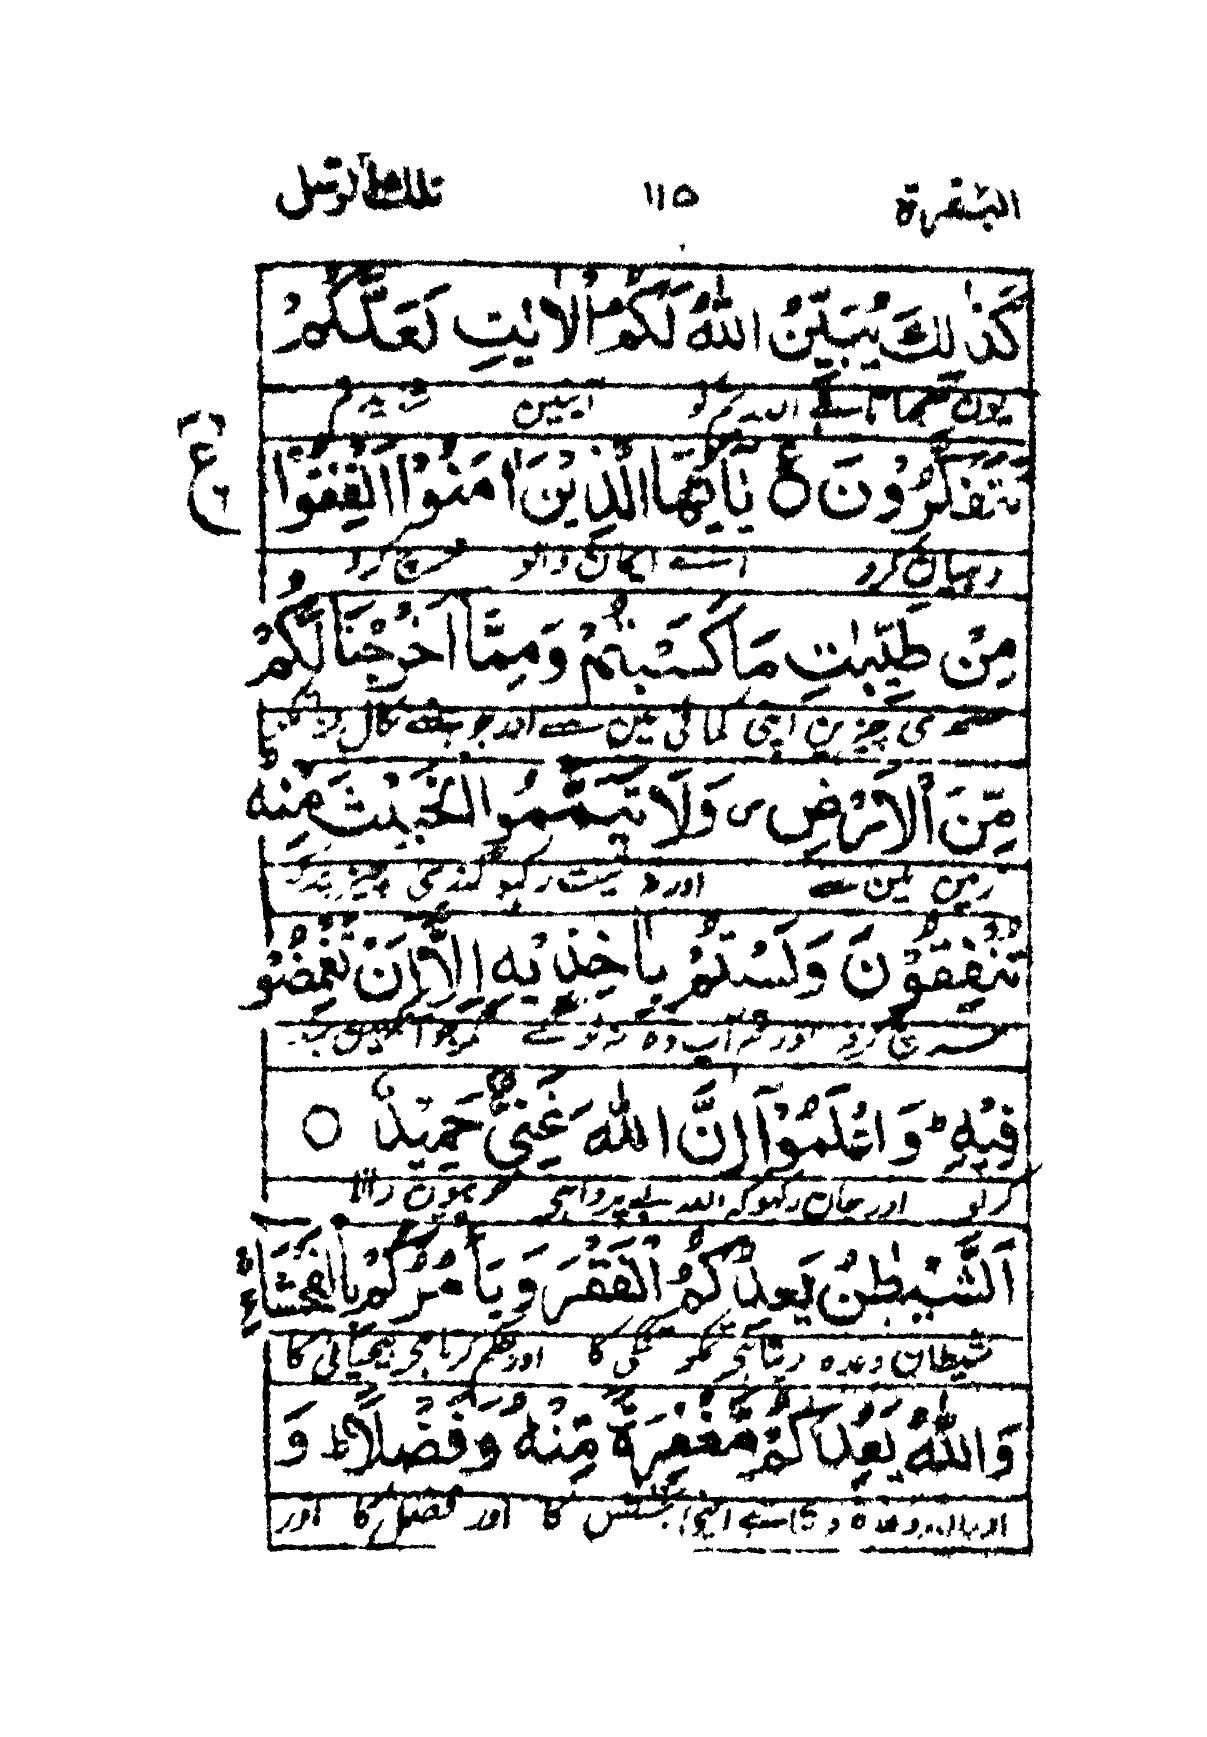 البقرة ١١٥ تلك الرسل
كَذٰلِكَ يُبَيِّنُ اللّٰهُ لَكُمُ الْاٰيٰتِ لَعَلَّكُمْ
یوں سمجھاتا ہے اللہ تم کو آیتیں شاید تم
تَتَفَكَّرُوْنَ ○ ع يٰٓاَيُّهَا الَّذِيْنَ اٰمَنُوْٓا اَنْفِقُوْا
دہیان کرو اے ایمان والو خرچ کرو
مِنْ طَيِّبٰتِ مَا كَسَبْتُمْ وَمِمَّآ اَخْرَجْنَا لَكُمْ
ستھری چیزیں اپنی کمائی میں سے اور جو ہمنے نکال دیا تمکو
مِّنَ الْاَرْضِ ص وَلَا تَيَمَّمُوا الْخَبِيْثَ مِنْهُ
زمین میں سے اور مت رکہو گندی چیز پر
تُنْفِقُوْنَ وَلَسْتُمْ بِاٰخِذِيْهِ اِلَّآ اَنْ تُغْمِضُوْا
خرچ کرو اور تم آپ وہ نہ لو گے مگر جو آنکھیں
فِيْهِ ط وَاعْلَمُوْٓا اَنَّ اللّٰهَ غَنِيٌّ حَمِيْدٌ ○
کر لو اور جان رکہو کہ اللہ بے پروا ہی
اَلشَّيْطٰنُ يَعِدُكُمُ الْفَقْرَ وَيَاْمُرُكُمْ بِالْفَحْشَآءِ
شیطان وعدہ دیتا ہی تمکو تنگی کا اور حکم کرتا ہی بیحیائی کا
وَاللّٰهُ يَعِدُكُمْ مَّغْفِرَةً مِّنْهُ وَفَضْلًا ط وَ
اور اللہ وعدہ دیتا ہے اپنی بخشش کا اور فضل کا اور